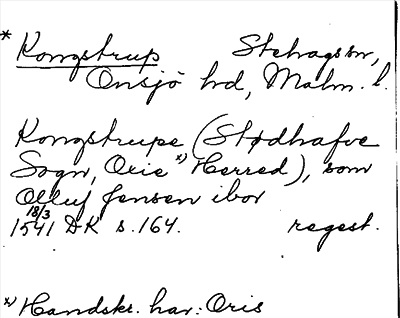 * Kongstrup Stehags sn,
Onsjö hd, Malm. l.
Kongstrupe (Stødhafve
Sogn, Orie *) Herred), som
Olluf Jensen ibor
18/3
1541 DK s. 164. regest.
*) Handskr. har: Oris